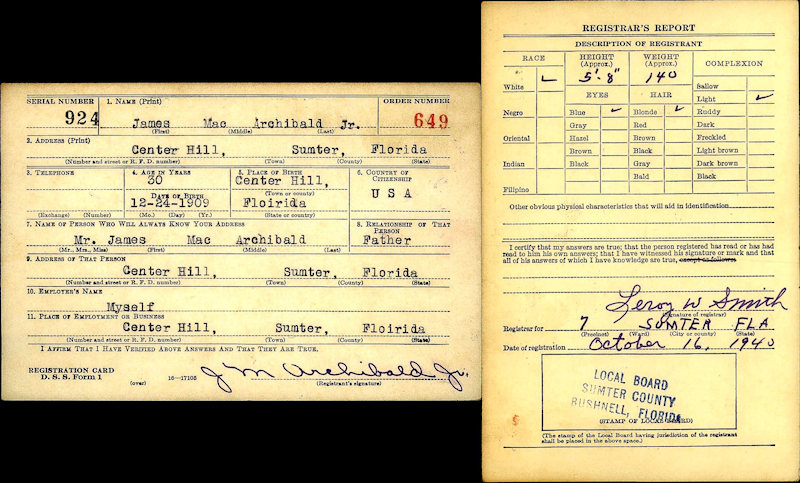 SERIAL NUMBER
924
1. NAME (Print)
James Mac Archibald Jr.
(First) (Middle) (Last)
ORDER NUMBER
649
2. ADDRESS (Print)
Center Hill, Sumter, Florida
(Number and street or R. F. D. number) (Town) (County) (State)
3. TELEPHONE
(Exchange) (Number)
4. AGE IN YEARS
30
DATE OF BIRTH
12-24-1909
(Mo.) (Day) (Yr.)
5. PLACE OF BIRTH
Center Hill,
(Town or county)
Floirida
(State or country)
6. COUNTRY OF
CITIZENSHIP
U S A
7. NAME OF PERSON WHO WILL ALWAYS KNOW YOUR ADDRESS
Mr. James Mac Archibald
(Mr., Mrs., Miss) (First) (Middle) (Last)
8. RELATIONSHIP OF THAT
PERSON
Father
9. ADDRESS OF THAT PERSON
Center Hill, Sumter, Florida
(Number and street or R. F. D. number) (Town) (County) (State)
10. EMPLOYER'S NAME
Myself
11. PLACE OF EMPLOYMENT OR BUSINESS
Center Hill, Sumter, Floirida
(Number and street or R. F. D. number) (Town) (County) (State)
I AFFIRM THAT I HAVE VERIFIED ABOVE ANSWERS AND THAT THEY ARE TRUE.
REGISTRATION CARD
D. S. S. Form 1
(over)
16—17105
J M Archibald Jr.
(Registrant's signature)
REGISTRAR'S REPORT
DESCRIPTION OF REGISTRANT
RACE
White ✓
Negro
Oriental
Indian
Filipino
HEIGHT
(Approx.)
5'-8"
WEIGHT
(Approx.)
140
EYES
Blue ✓
Gray
Hazel
Brown
Black
HAIR
Blonde ✓
Red
Brown
Black
Gray
Bald
COMPLEXION
Sallow
Light ✓
Ruddy
Dark
Freckled
Light brown
Dark brown
Black
Other obvious physical characteristics that will aid in identification
I certify that my answers are true; that the person registered has read or has had
read to him his own answers; that I have witnessed his signature or mark and that
all of his answers of which I have knowledge are true, except as follows:
Leroy W Smith
(Signature of registrar)
Registrar for 7 SUMTER FLA
(Precinct) (Ward) (City or county) (State)
Date of registration October 16, 1940
LOCAL BOARD
SUMTER COUNTY
BUSHNELL, FLORIDA
(STAMP OF LOCAL BOARD)
(The stamp of the Local Board having jurisdiction of the registrant
shall be placed in the above space.)